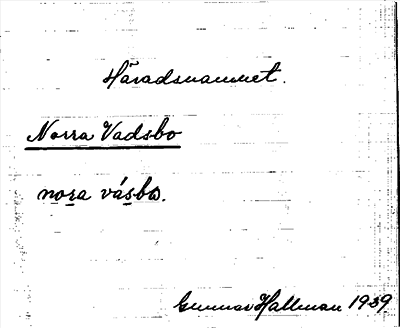 Häradsnamnet.
Norra Vadsbo
nora vásbo.
Gunnar Hallman 1939